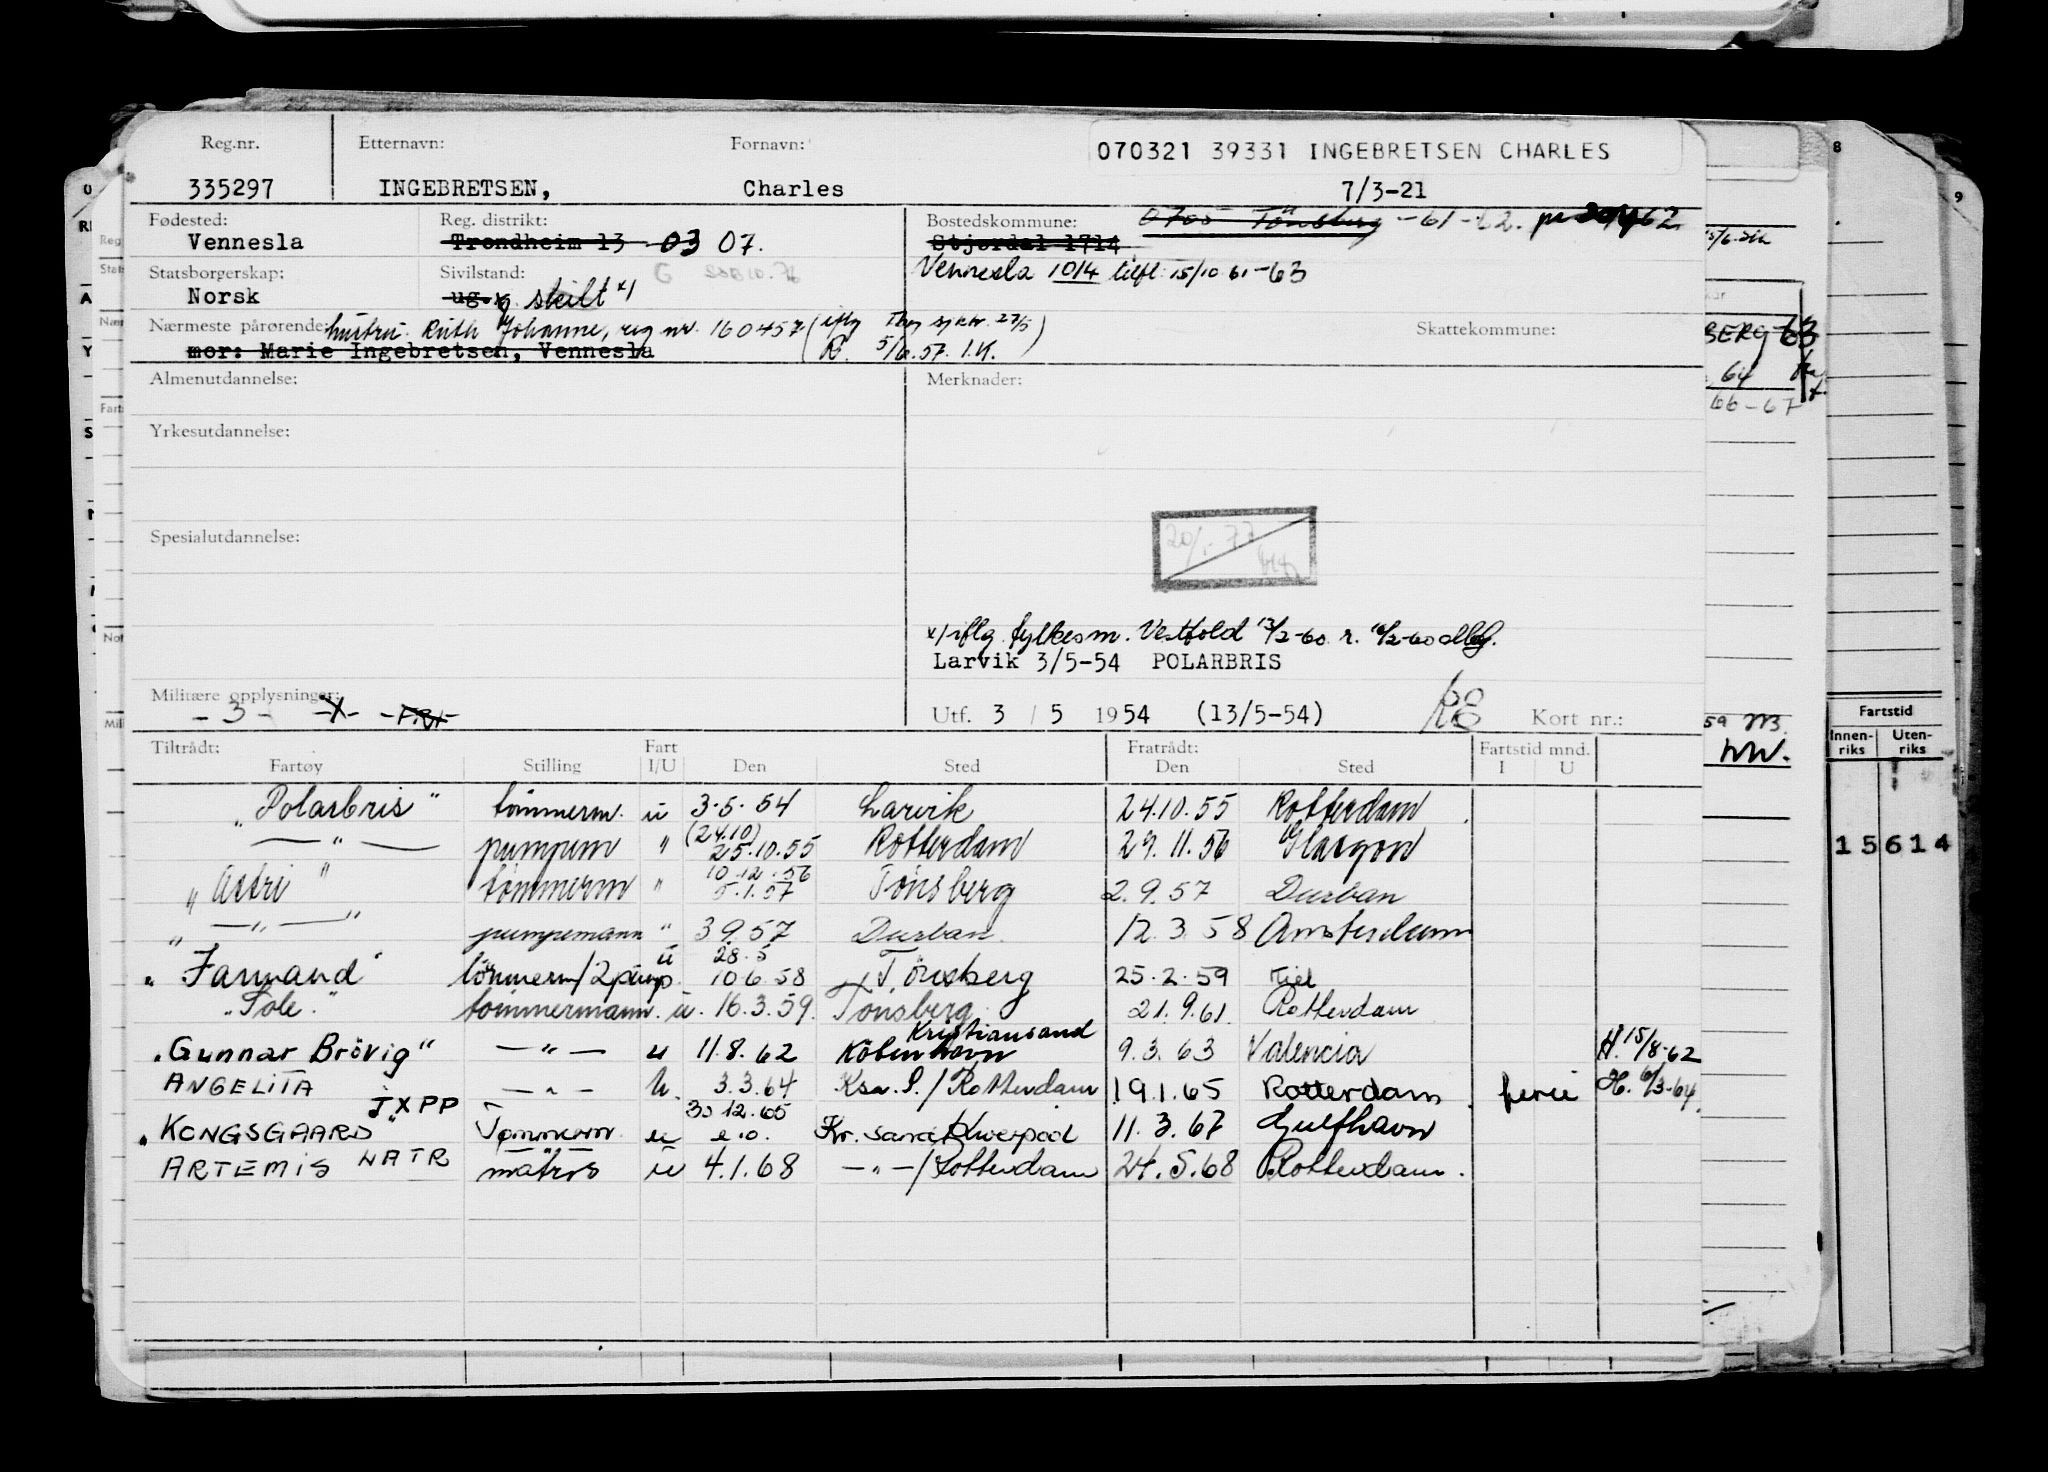 Reg.nr. Etternavn: Fornavn: 070321 39331 INGEBRETSEN CHARLES
335297 INGEBRETSEN, Charles 7/3-21
Fødested: Reg. distrikt: Bostedskommune: 0705 Tönsberg -61-62.
Vennesla Trondheim 13 03 07. Stjørdal 1714
Statsborgerskap: Sivilstand: Vennesla 1014 tilfl. 15/10 61-63
Norsk ug. g. skilt x/
Nærmeste pårørende: hustru: Ruth Johanne, reg nr. 160457 (iflg 27/5) Skattekommune:
mor: Marie Ingebretsen, Vennesla 57. I.K.
Almenutdannelse: Merknader:
Yrkesutdannelse:
Spesialutdannelse:
x/ iflg. fylkesm. Vestfold 13/2-60 r.
Larvik 3/5-54 POLARBRIS
Militære opplysninger:
- 3 - -X-
Utf. 3 / 5 1954 (13/5-54) Kort nr.:
Tiltrådt: Fart Fratrådt: Fartstid mnd.
Fartøy Stilling I/U Den Sted Den Sted I U
"Polarbris" tömmerm. u 3.5.54 Larvik 24.10.55 Rotterdam
— " — pumpem " (24.10) 25.10.55 Rotterdam 29.11.56 Glasgow
"Astri" tömmerm " 10.12.56 5.1.57 Tönsberg 2.9.57 Durban
" — " — " pumpemann " 3.9.57 Durban. 12.3.58 Amsterdam
"Farmand" tömmerm/2pump. u 28.5 10.6.58 Tönsberg 25.2.59 Kiel
"Sole." tömmermann. u. 16.3.59. Tönsberg 21.9.61. Rotterdam
"Gunnar Brövig" — " — u 11.8.62 Köbenhavn Kristiansand 9.3.63 Valencia H. 15/8-62
ANGELITA — " — u. 3.3.64 Ksa. S./Rotterdam 19.1.65 Rotterdam. ferie H. 6/3-64.
"KONGSGAARD" JXPP Tömmerm. u 30.12.65 Kr.sand/Liverpool 11.3.67 Gulfhavn
ARTEMIS WATR matros u 4.1.68 — " —/Rotterdam 24.5.68 Rotterdam.
8
9
BERG 63
64
66-67
59
Fartstid
Innen-riks Uten-riks
15614